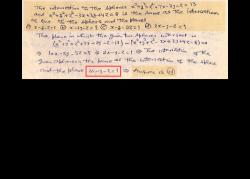 The intersection of the spheres x²+y²+z²+7x-2y-z=13
and x²+y²+z²-3x+3y+4z=8 is the same as the intersection
of one of the spheres and the plane
x-y-z=1 x-2y-z=1 2x-y-z=1
The plane in which the given two spheres intersect is
(x²+y²+z²+7x-2y-z-13)-(x²+y²+z²-3x+3y+4z-8)=0
⇒ 10x-5y-5z=5 ⇒ 2x-y-z=1 ⇒ The intersection of the
given spheres is the same as the intersection of the sphere
and the plane 2x-y-z=1 ⇒ Answer is